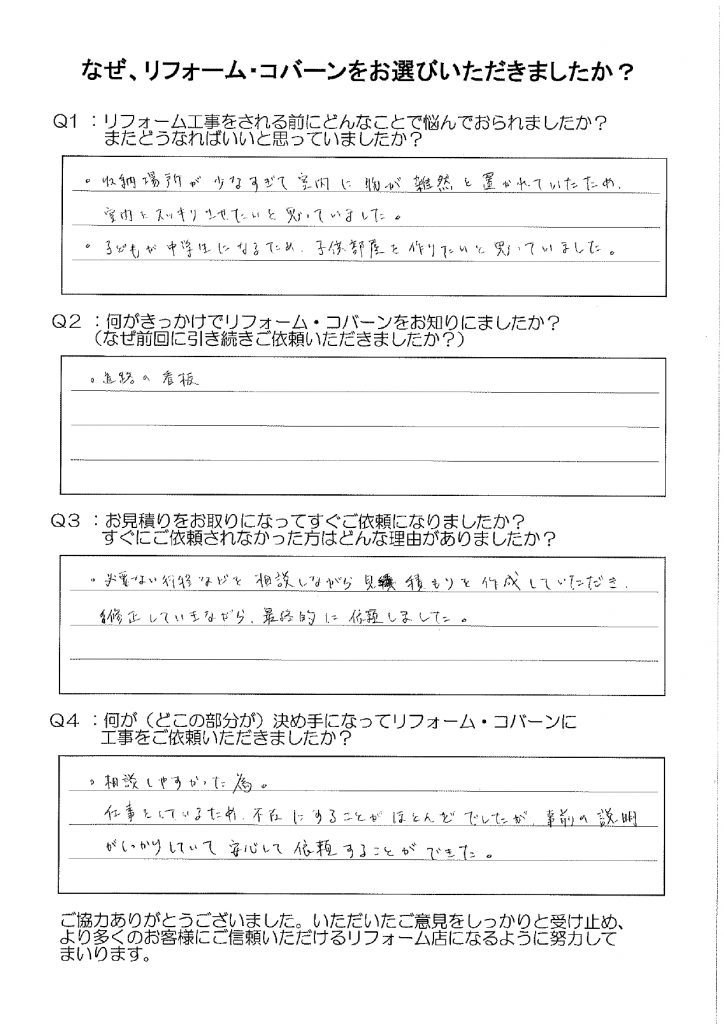 なぜ、リフォーム・コバーンをお選びいただきましたか？
Q1：リフォーム工事をされる前にどんなことで悩んでおられましたか？
またどうなればいいと思っていましたか？
。収納場所が少なすぎて室内に物が雑然と置かれていたため、
室内をスッキリさせたいと思っていました。
。子どもが中学生になるため、子供部屋を作りたいと思っていました。
Q2：何がきっかけでリフォーム・コバーンをお知りにましたか？
（なぜ前回に引き続きご依頼いただきましたか？）
。道路の看板
Q3：お見積りをお取りになってすぐご依頼になりましたか？
すぐにご依頼されなかった方はどんな理由がありましたか？
。必要ない などを相談しながら見積もりを作成していただき、
修正していきながら、最終的に依頼しました。
Q4：何が（どこの部分が）決め手になってリフォーム・コバーンに
工事をご依頼いただきましたか？
。相談しやすかった為。
仕事をしているため、不在にすることがほとんどでしたが、事前の説明
がしっかりしていて安心して依頼することができた。
ご協力ありがとうございました。いただいたご意見をしっかりと受け止め、
より多くのお客様にご信頼いただけるリフォーム店になるように努力して
まいります。